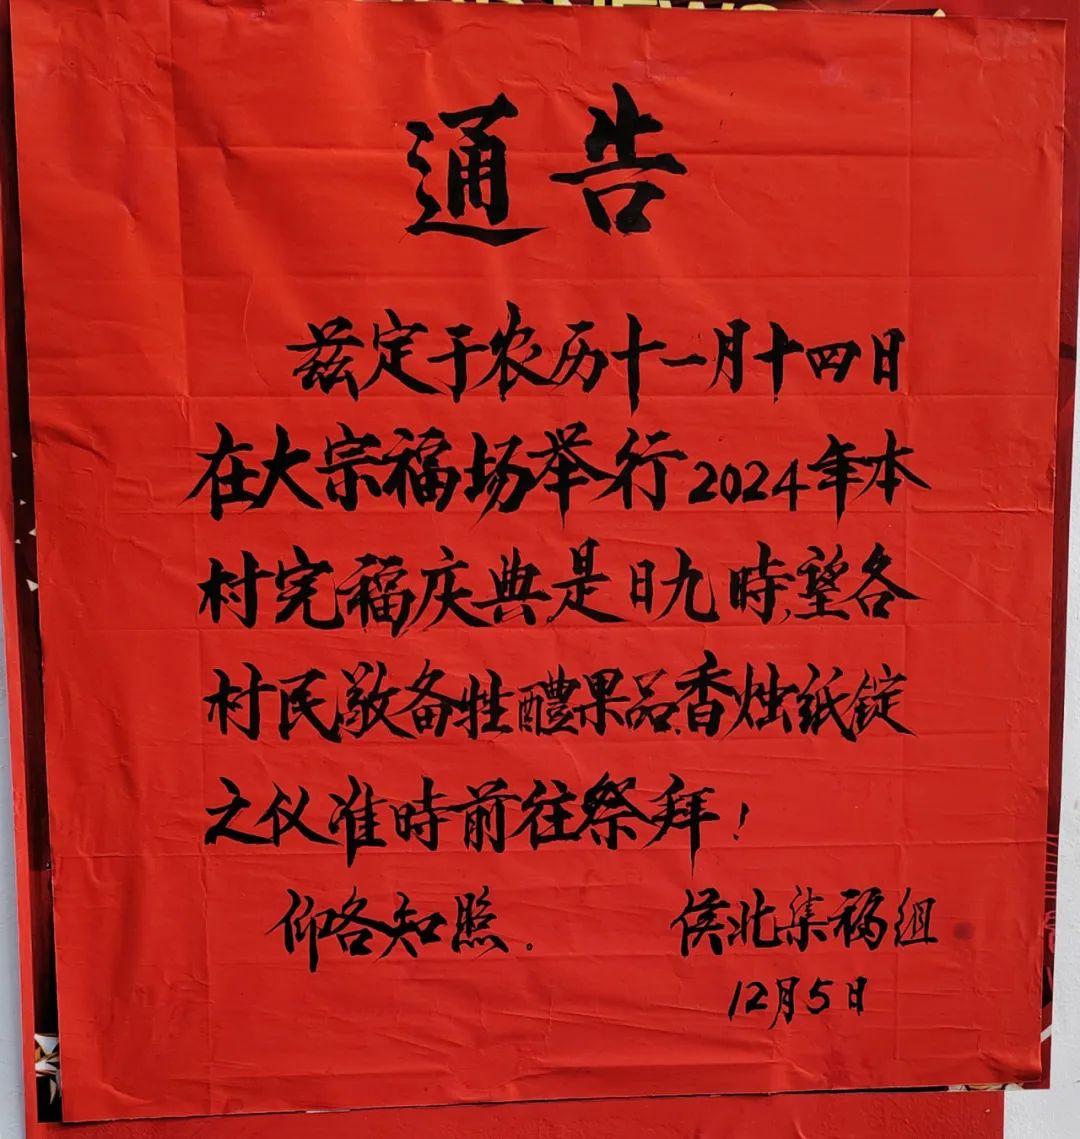 通告
兹定于农历十一月十四日
在大宗福场举行2024年本
村完福庆典是日九時,望各
村民敬备牲醴果品.香烛纸锭
之仪准時前往祭拜!
仰各知照.
侯北集福组
12月5日